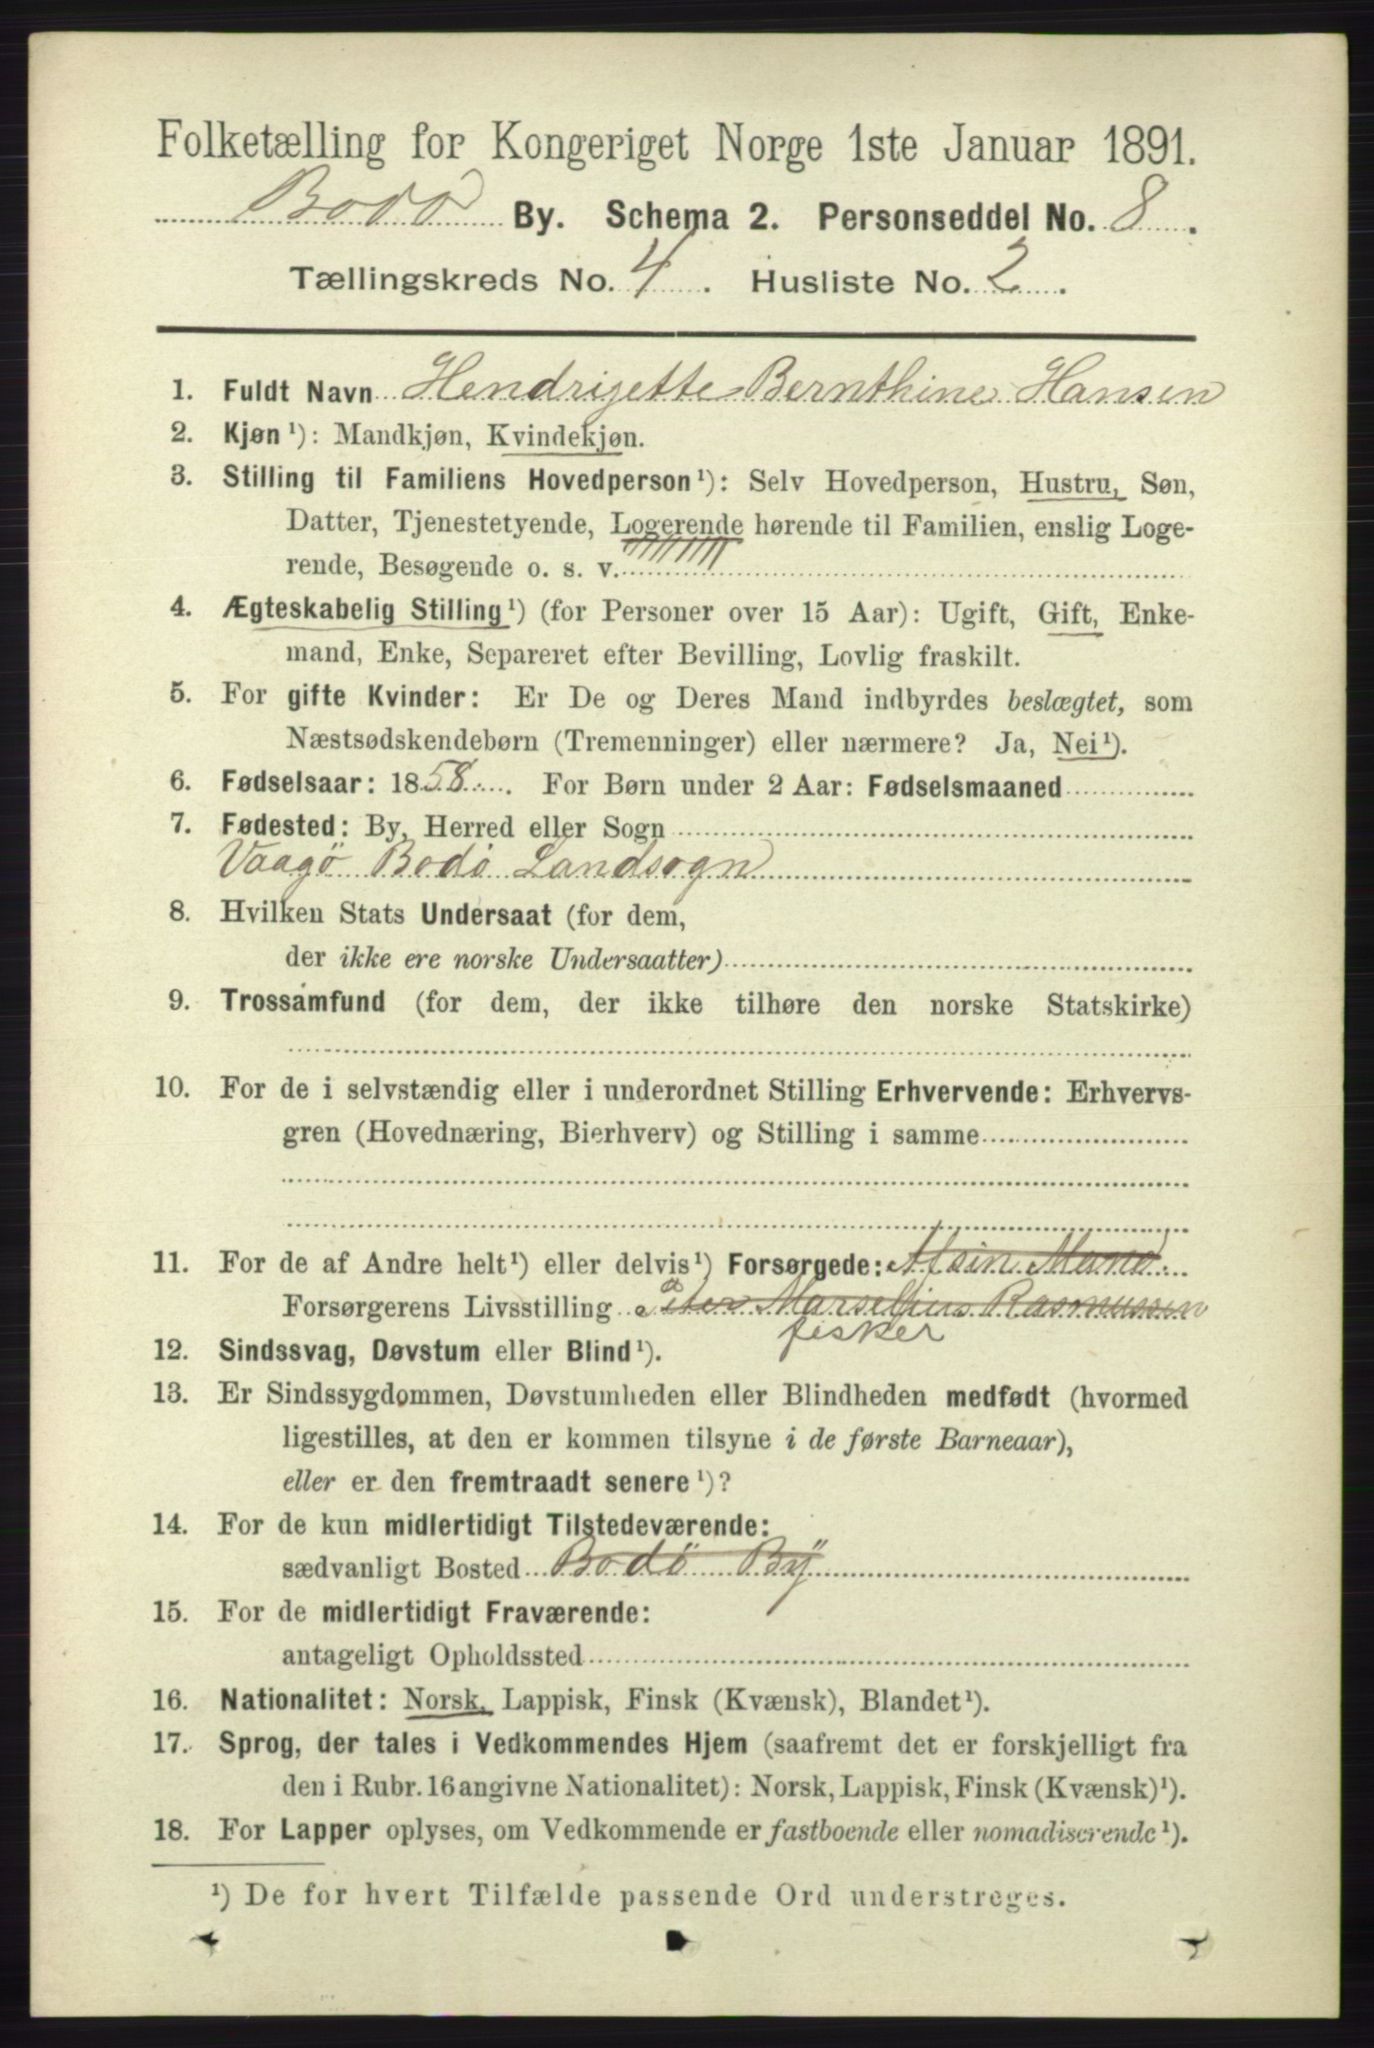 Folketælling for Kongeriget Norge 1ste Januar 1891.
Bodø By. Schema 2. Personseddel No. 8.
Tællingskreds No. 4. Husliste No. 2.
1. Fuldt Navn Hendrigette Bernthine Hansen
2. Kjøn¹): Mandkjøn, Kvindekjøn.
3. Stilling til Familiens Hovedperson¹): Selv Hovedperson, Hustru, Søn,
Datter, Tjenestetyende, Logerende hørende til Familien, enslig Loge-
rende, Besøgende o. s. v.
4. Ægteskabelig Stilling¹) (for Personer over 15 Aar): Ugift, Gift, Enke-
mand, Enke, Separeret efter Bevilling, Lovlig fraskilt.
5. For gifte Kvinder: Er De og Deres Mand indbyrdes beslægtet, som
Næstsødskendebørn (Tremenninger) eller nærmere? Ja, Nei¹).
6. Fødselsaar: 1858. For Børn under 2 Aar: Fødselsmaaned
7. Fødested: By, Herred eller Sogn
Vaagö Bodö Landsogn
8. Hvilken Stats Undersaat (for dem,
der ikke ere norske Undersaatter)
9. Trossamfund (for dem, der ikke tilhøre den norske Statskirke)
10. For de i selvstændig eller i underordnet Stilling Erhvervende: Erhvervs-
gren (Hovednæring, Bierhverv) og Stilling i samme
11. For de af Andre helt¹) eller delvis¹) Forsørgede: Main Mand
Forsørgerens Livsstilling Peter Marselius Rasmussen
fisker
12. Sindssvag, Døvstum eller Blind¹).
13. Er Sindssygdommen, Døvstumheden eller Blindheden medfødt (hvormed
ligestilles, at den er kommen tilsyne i de første Barneaar),
eller er den fremtraadt senere¹)?
14. For de kun midlertidigt Tilstedeværende:
sædvanligt Bosted Bodö By
15. For de midlertidigt Fraværende:
antageligt Opholdssted
16. Nationalitet: Norsk, Lappisk, Finsk (Kvænsk), Blandet¹).
17. Sprog, der tales i Vedkommendes Hjem (saafremt det er forskjelligt fra
den i Rubr. 16 angivne Nationalitet): Norsk, Lappisk, Finsk (Kvænsk)¹).
18. For Lapper oplyses, om Vedkommende er fastboende eller nomadiserende¹).
¹) De for hvert Tilfælde passende Ord understreges.